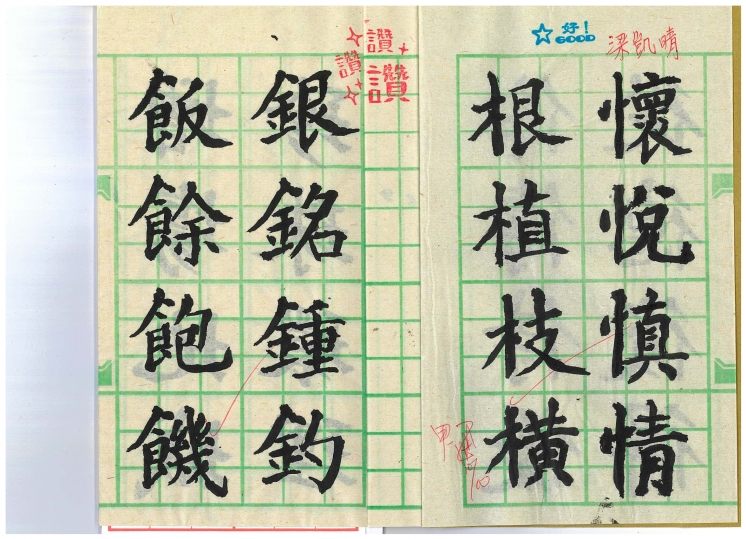 懷悅慎情
根植枝橫
銀銘鍾釣
飯餘飽饑
梁凱晴
好！
GOOD
讚
讚
讚
甲
100